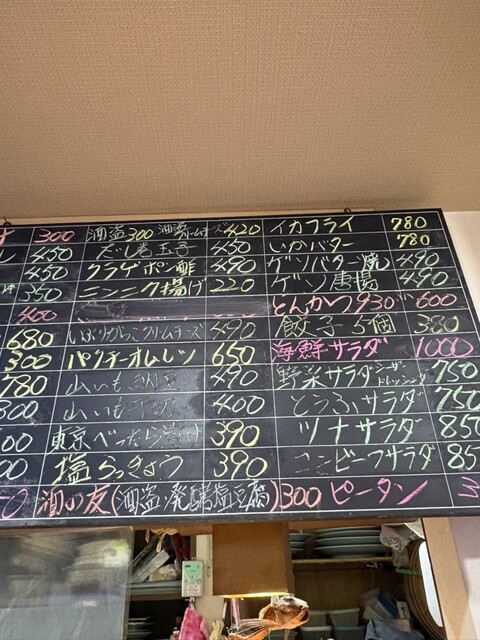 300 酒盗300 酒盗チーズ420 イカフライ 780
450 だし巻玉子 450 いかバター 780
450 クラゲポン酢 490 ゲソバター焼 490
350 ニンニク揚げ 220 ゲソ唐揚 490
400 とんかつ930 600
680 いぶりがっこクリームチーズ 490 餃子5個 380
300 パクチーオムレツ 650 海鮮サラダ 1000
780 山いも 490 野菜サラダ シーザードレッシング 750
山いも 400 とうふサラダ 750
東京べったら漬け 390 ツナサラダ 850
塩らっきょう 390 コンビーフサラダ
酒の友(酒盗、発酵塩豆腐)300 ピータン